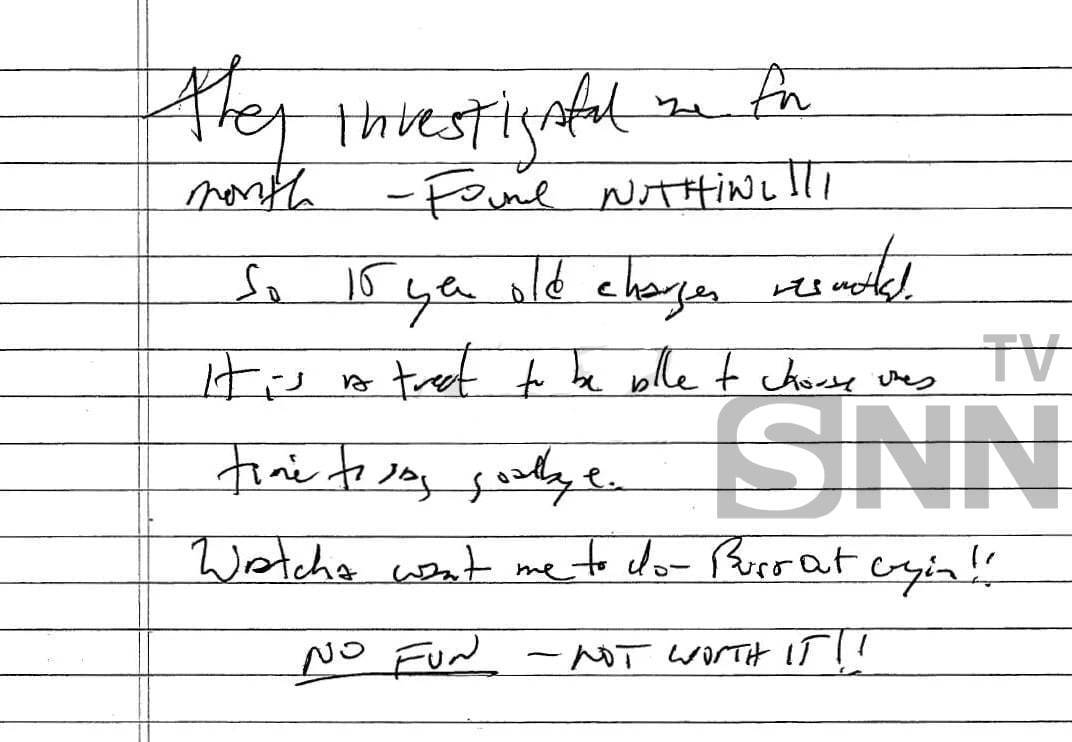 They investigated me for
month - Found NOTHING!!!
So 15 year old charges resulted.
It is a treat to be able to choose ones
TV
SNN
time to say goodbye.
Watcha want me to do - Burst out cryin!!
NO FUN - NOT WORTH IT!!